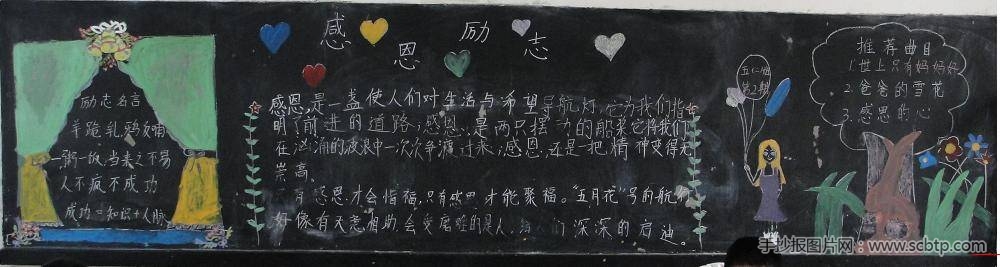 感恩励志
励志名言
羊跪乳,鸦反哺
一粥一饭,当来之不易
人不疯不成功
成功=知识+人脉
感恩,是一盏使人们对生活与希望导航灯,它为我们指
明了前进的道路;感恩,是两只摆动的船桨它将我们
在汹涌的波浪中一次次争渡过来;感恩,还是一把精神变得无
崇高。
有感恩才会惜福,只有感恩才能聚福。“五月花”号的航行
好像有天意相助,会受磨难的是人,给人们深深的启迪。
第2期
推荐曲目
1.世上只有妈妈好
2.爸爸的雪花
3.感恩的心
手抄报图片网:www.scbtp.com